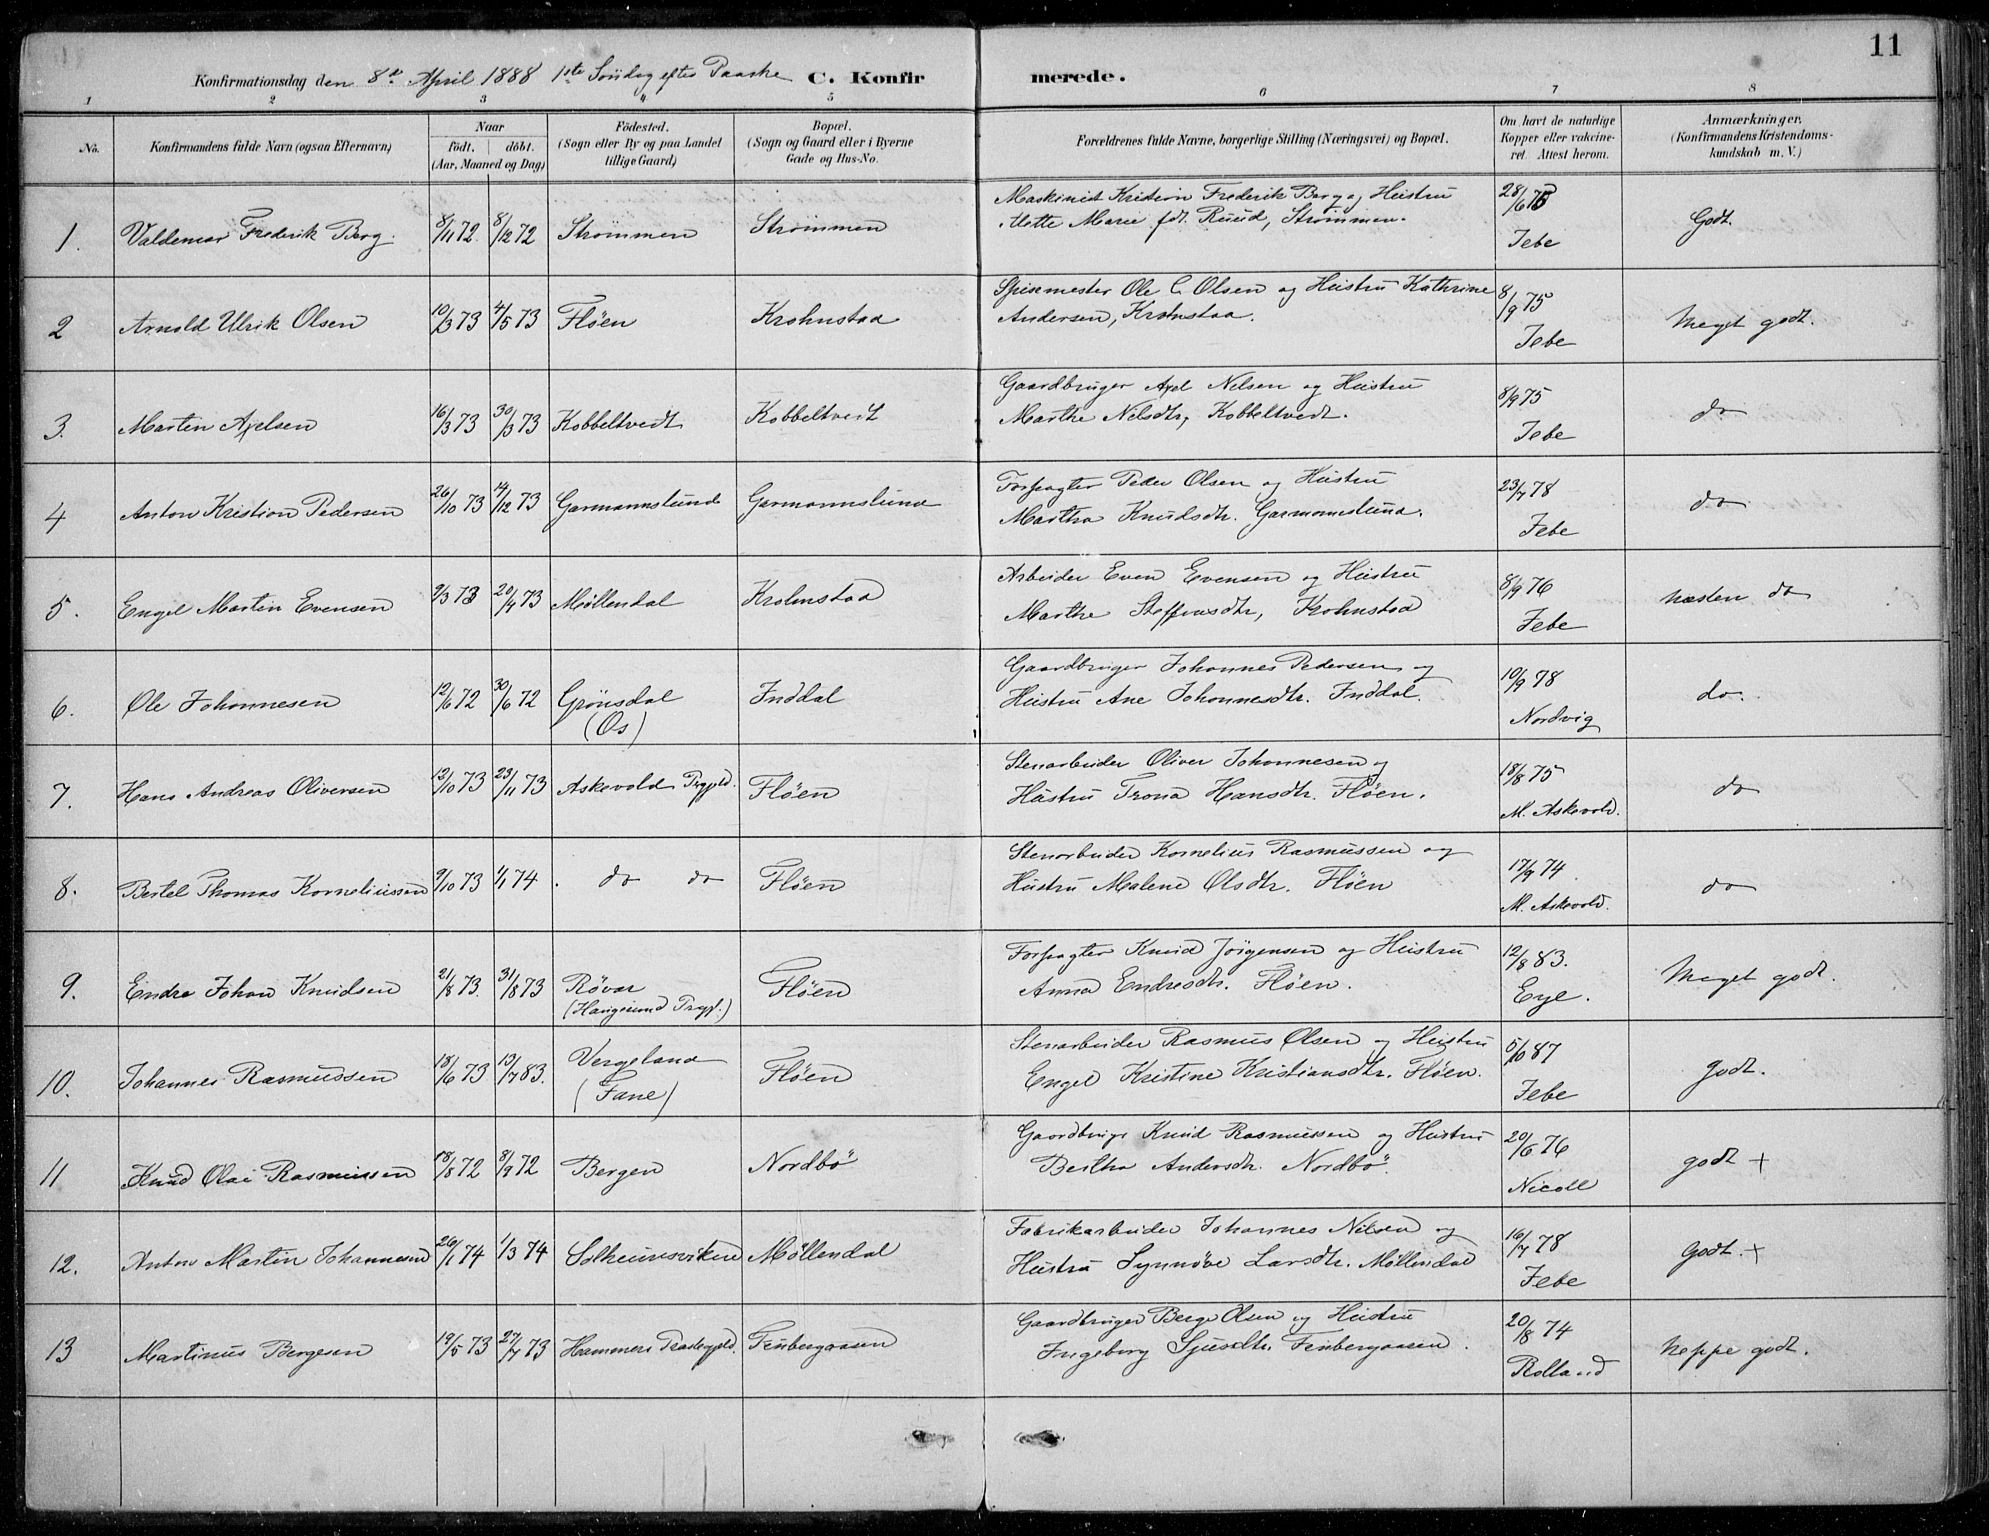 11
Konfirmationsdag den 8de April 1888 1ste Søndag efter Paaske C. Konfirmerede.
1 2 3 4 5 6 7 8
No.
Konfirmandens fulde Navn (ogsaa Efternavn)
Naar
født. | døbt.
(Aar, Maaned og Dag)
Födested.
(Sogn eller By og paa Landet
tillige Gaard)
Bopæl.
(Sogn og Gaard eller i Byerne
Gade og Hus-No.
Forældrenes fulde Navne, borgerlige Stilling (Næringsvei) og Bopæl.
Om havt de naturlige
Kopper eller vakcine-
ret. Attest herom.
Anmærkninger.
(Konfirmandens Kristendoms-
kundskab m. V.)
Maskinist Kristian Frederik Berg og Hustru 28/6 73
1. Valdemar Frederik Berg. 8/11 72. 8/12 72 Strømmen Strømmen Mette Marie fdt. Ruud, Strømmen. Jebe Godt.
Spisemester Ole C. Olsen og Hustru Kathrine 8/9 75
2 Arnold Ulrik Olsen 10/3 73 4/5 73 Fløen Krohnstad Andersen, Krohnstad. Jebe Meget godt.
Gaardbruger Axel Nelsen og Hustru 8/9 75
3. Martin Axelsen 16/3 73 30/3 73 Kobbeltvedt Kobbeltvedt Marthe Nelsdtr, Kobbeltvedt. Jebe do
Forpagter Peder Olsen og Hustru 23/7 78
4 Anton Kristian Pedersen 26/10 73 14/12 73 Garmannslund Garmannslund Martha Knudsdtr. Garmannslund. Jebe do
Arbeider Even Evensen og Hustru 8/9 76
5. Engel Martin Evensen 9/3 73 20/4 73 Møllendal Krohnstad Marthe Steffensdtr, Krohnstad Jebe næsten do
Gaardbruger Johannes Pedersen og 10/9 78
6. Ole Johannesen 12/6 72 30/6 72 Grønsdal Inddal Hustru Ane Johannesdtr. Inddal. do.
(Os) Nordvig
Stenarbeider Oliver Johannesen og 18/8 75
7. Hans Andreas Oliversen 12/10 73 23/11 73 Askevold Prgjld. Fløen Hustru Trona Hansdtr. Fløen. M. Askevold. do
Stenarbeider Kornelius Rasmussen og 17/9 74
8. Bertel Thomas Korneliussen 9/10 73 1/1 74 do do Fløen Hustru Malene Olsdtr. Fløen M. Askevold. do
Forpagter Knud Jørgensen og Hustru 12/8 83.
9. Endre Johan Knudsen 21/8 73. 31/8 73 Røvær Fløen Anna Endresdtr. Fløen. Eye. Meget godt.
(Haugesund Prgj.)
Stenarbeider Rasmus Olsen og Hustru 5/10 87
10. Johannes Rasmussen 18/6 73 13/7 83. Vergeland Fløen Engel Kristine Kristiansdtr. Fløen. Jebe godt.
(Fane)
Gaardbruger Knud Rasmussen og Hustru 20/6 76
11 Knud Olai Rasmussen 18/8 72 8/9 72 Bergen Nordbø Bertha Andersdtr. Nordbø. Nicoll godt +
Fabrikarbeider Johannes Nilsen og 16/7 78
12. Anton Martin Johannesen 26/1 74 1/3 74 Solheimsviken Møllendal Hustru Synnøve Larsdtr. Møllendal Jebe Godt. +
Gaardbruger Berge Olsen og Hustru 20/8 74
13 Martinus Bergesen 19/5 73 27/7 73 Hammers Præstegjld. Finbergaasen Ingeborg Sjursdtr. Finbergaasen. Rolland neppe godt.